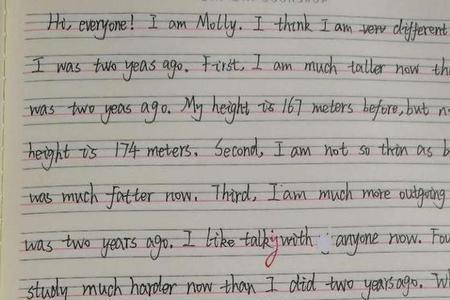 Hi, everyone! I am Molly. I think I am very different
I was two yeas ago. First, I am much taller now
was two yeas ago. My height is 167 meters before, but
height is 174 meters. Second, I am not so thin as
was much fatter now. Third, I am much more outgoing
was two years ago. I like with anyone now.
study much harder now than I did two years ago.